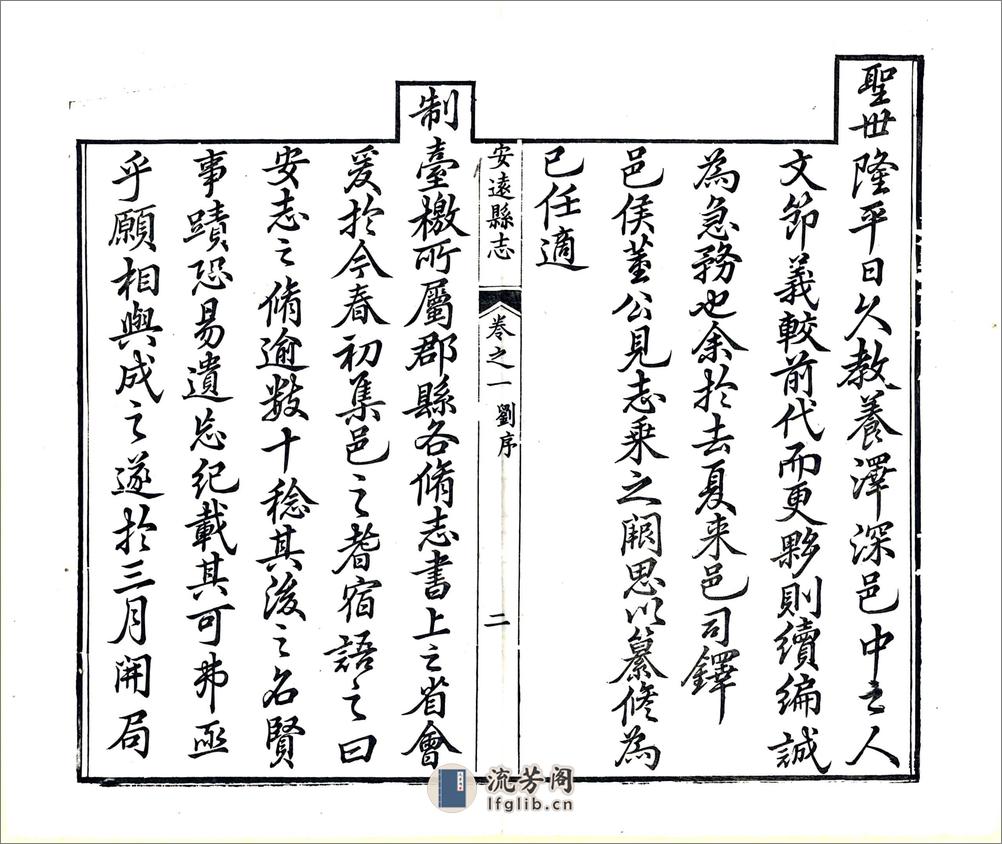 聖世隆平日久教養澤深邑中之人
文節義較前代而更夥則續編誠
為急務也余於去夏来邑司鐸
邑侯董公見志乗之闕思以纂修為
已任適
安遠縣志
卷之一
劉序
二
制臺檄所屬郡縣各脩志書上之省會
爰於今春初集邑之耆宿語之曰
安志之脩逾数十稔其後之名賢
事蹟恐易遺忘紀載其可弗亟
乎願相與成之遂於三月開局
流芳阁
lfglib.cn